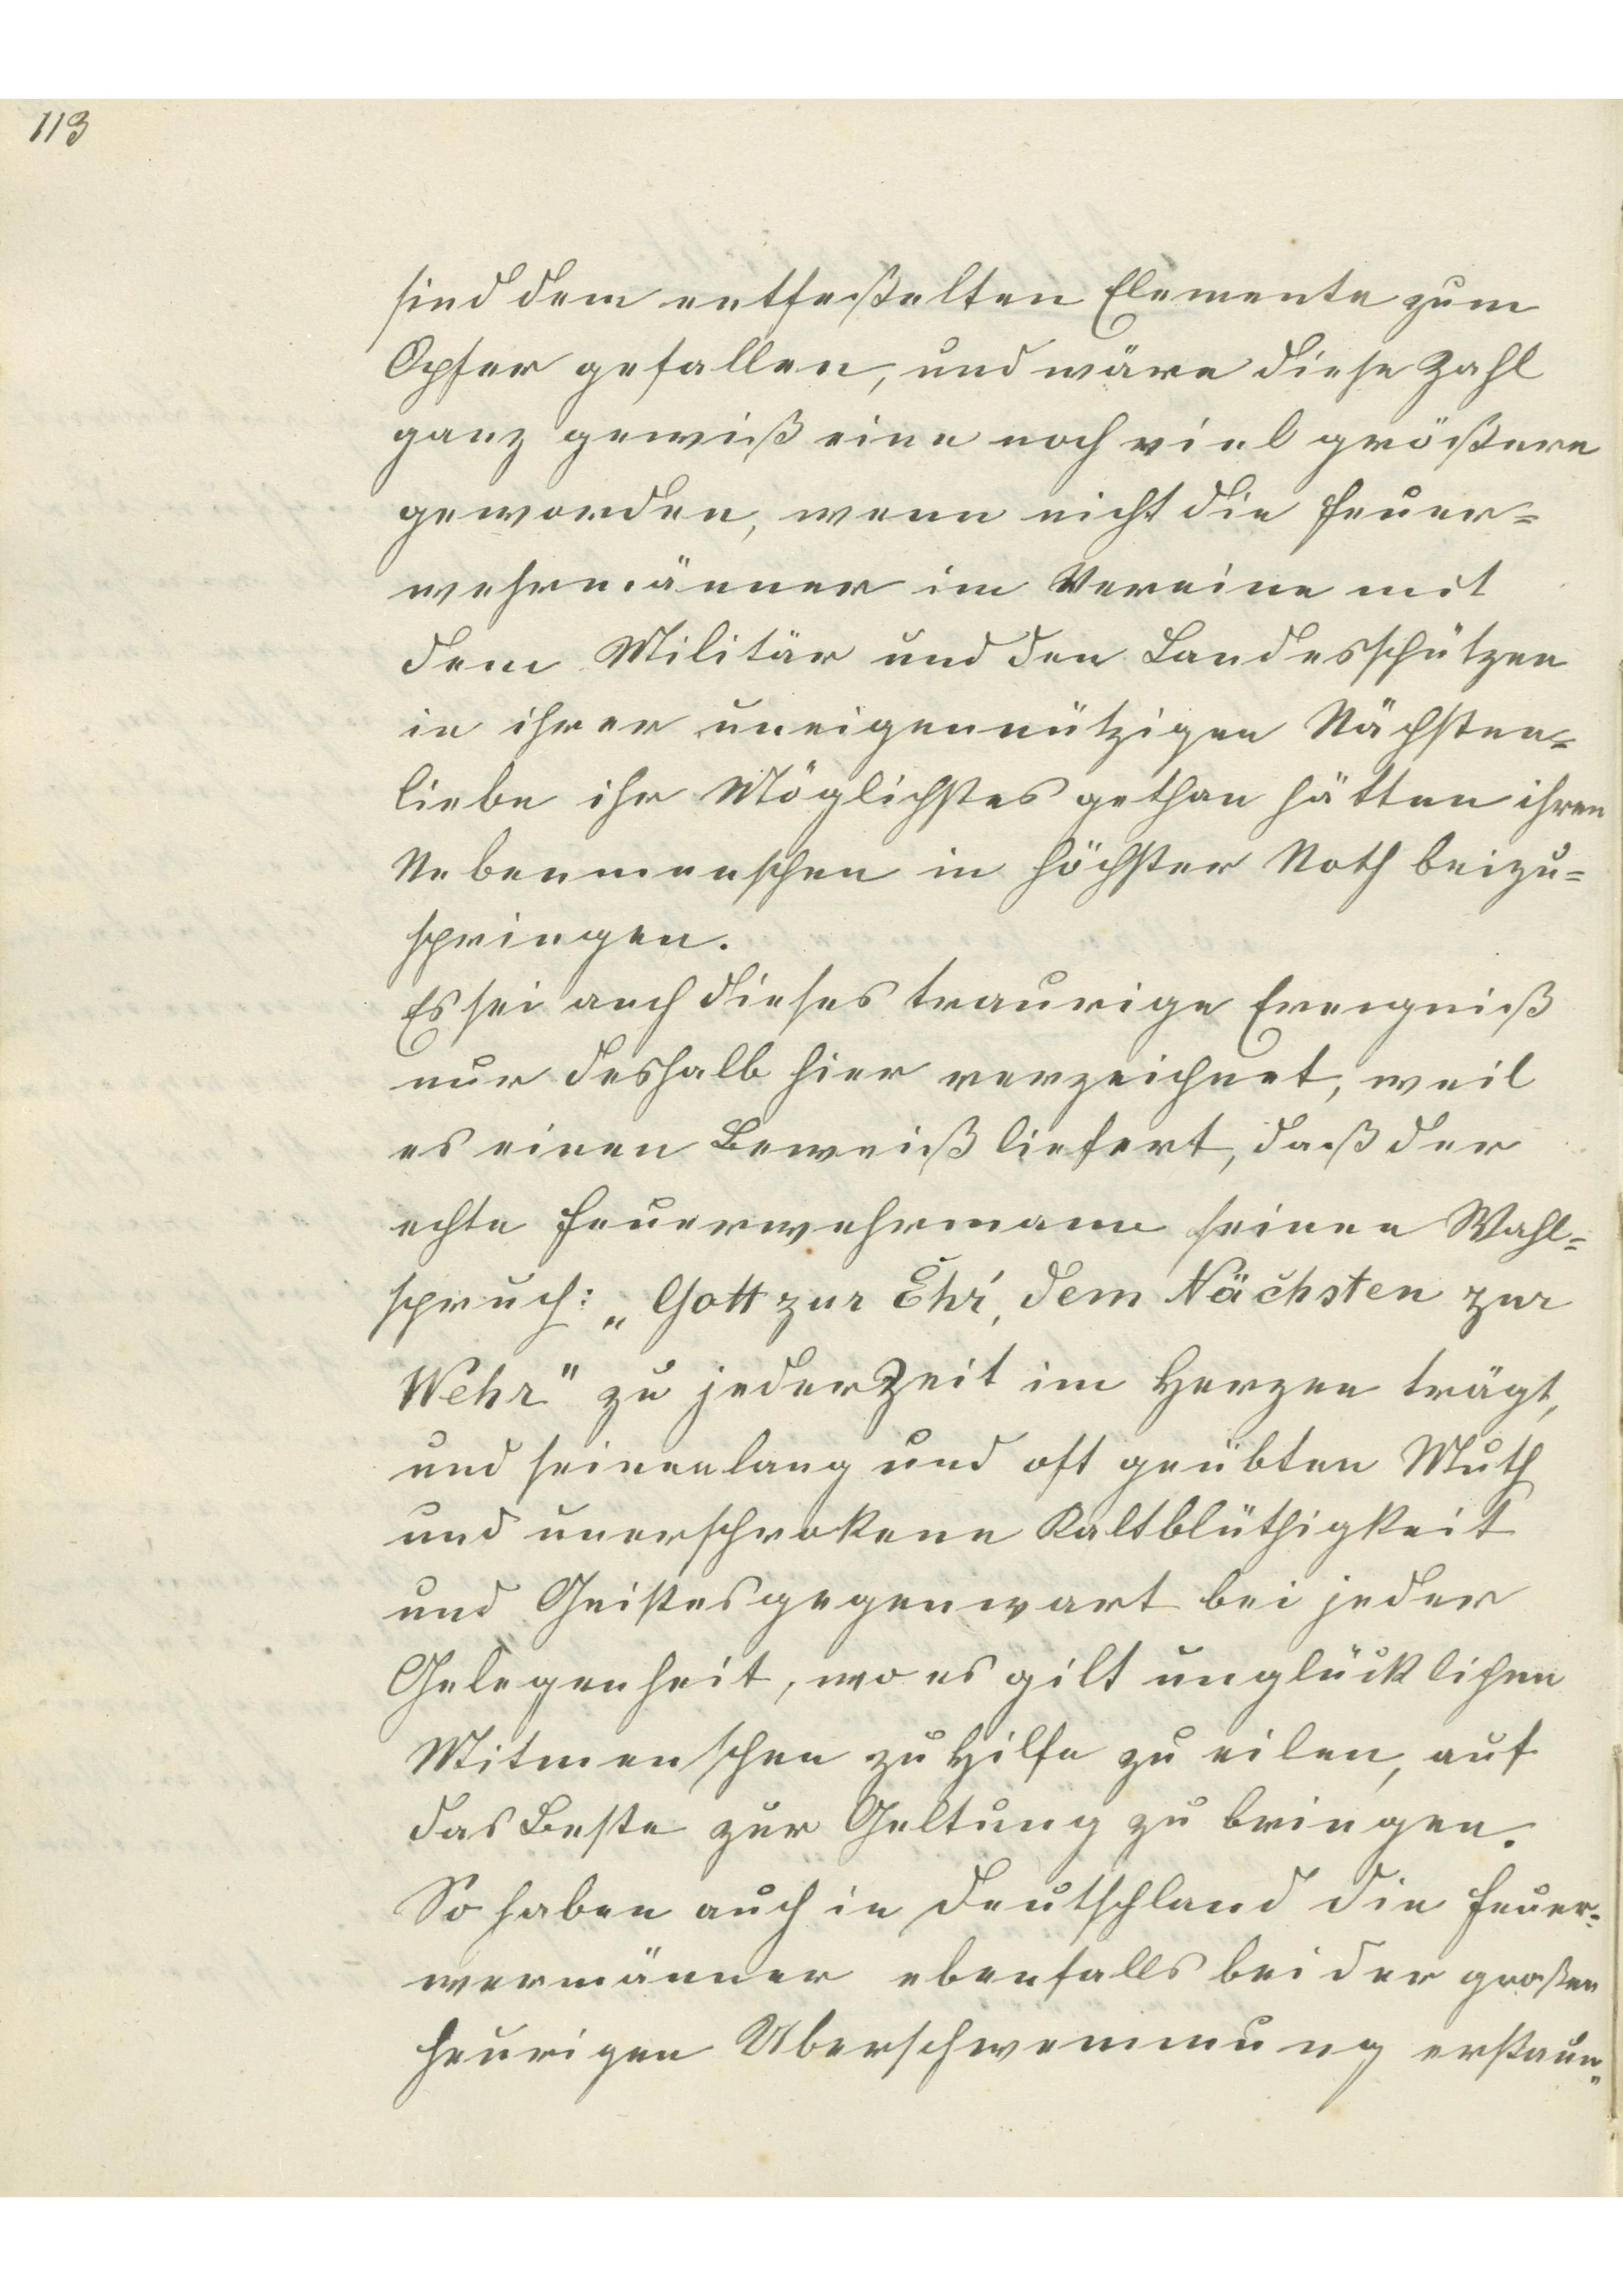 113
sind dem entfeßelten Elemente zum
Opfer gefallen, und wäre diese Zahl
ganz gewiß eine noch viel größere
geworden, wenn nicht die Feuer=
wehrmänner im Vereine mit
dem Militär und den Landesschützen
in ihrer uneigennützigen Nächsten=
liebe ihr Möglichstes gethan hätten ihren
Nebenmenschen in höchster Noth beizu=
springen.
Es sei auch dieses traurige Ereigniß
nur deshalb hier verzeichnet, weil
es einen Beweiß liefert, daß der
echte Feuerwehrmann seinen Wahl=
spruch: „Gott zur Ehr', dem Nächsten zur
Wehr" zu jeder Zeit im Herzen trägt,
und seinen lang und oft geübten Muth
und unerschrokene Kaltblüthigkeit
und Geistesgegenwart bei jeder
Gelegenheit, wo es gilt unglücklichen
Mitmenschen zu Hilfe zu eilen, auf
das Beste zur Geltung zu bringen.
So haben auch in Deutschland die Feuer=
wermänner ebenfalls bei der großen
heurigen Überschwemmung erstaun=